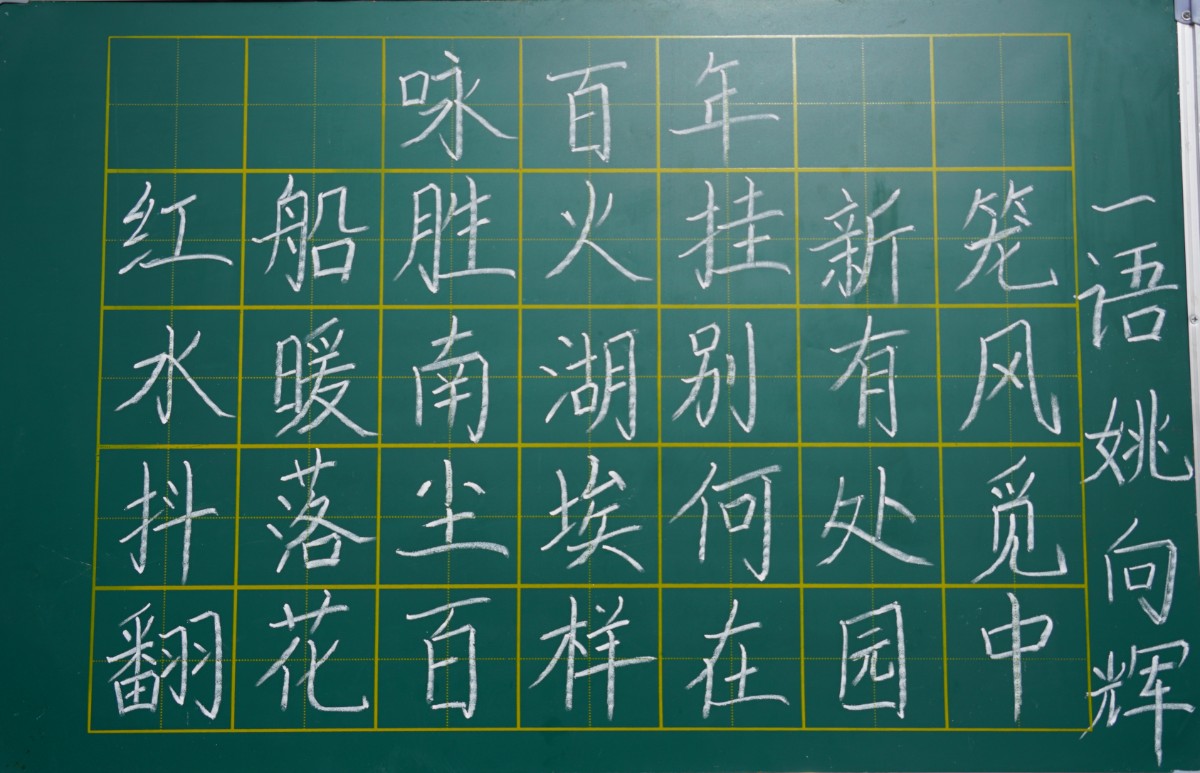 咏百年
红船胜火挂新笼
水暖南湖别有风
抖落尘埃何处觅
翻花百样在园中
一语姚向辉